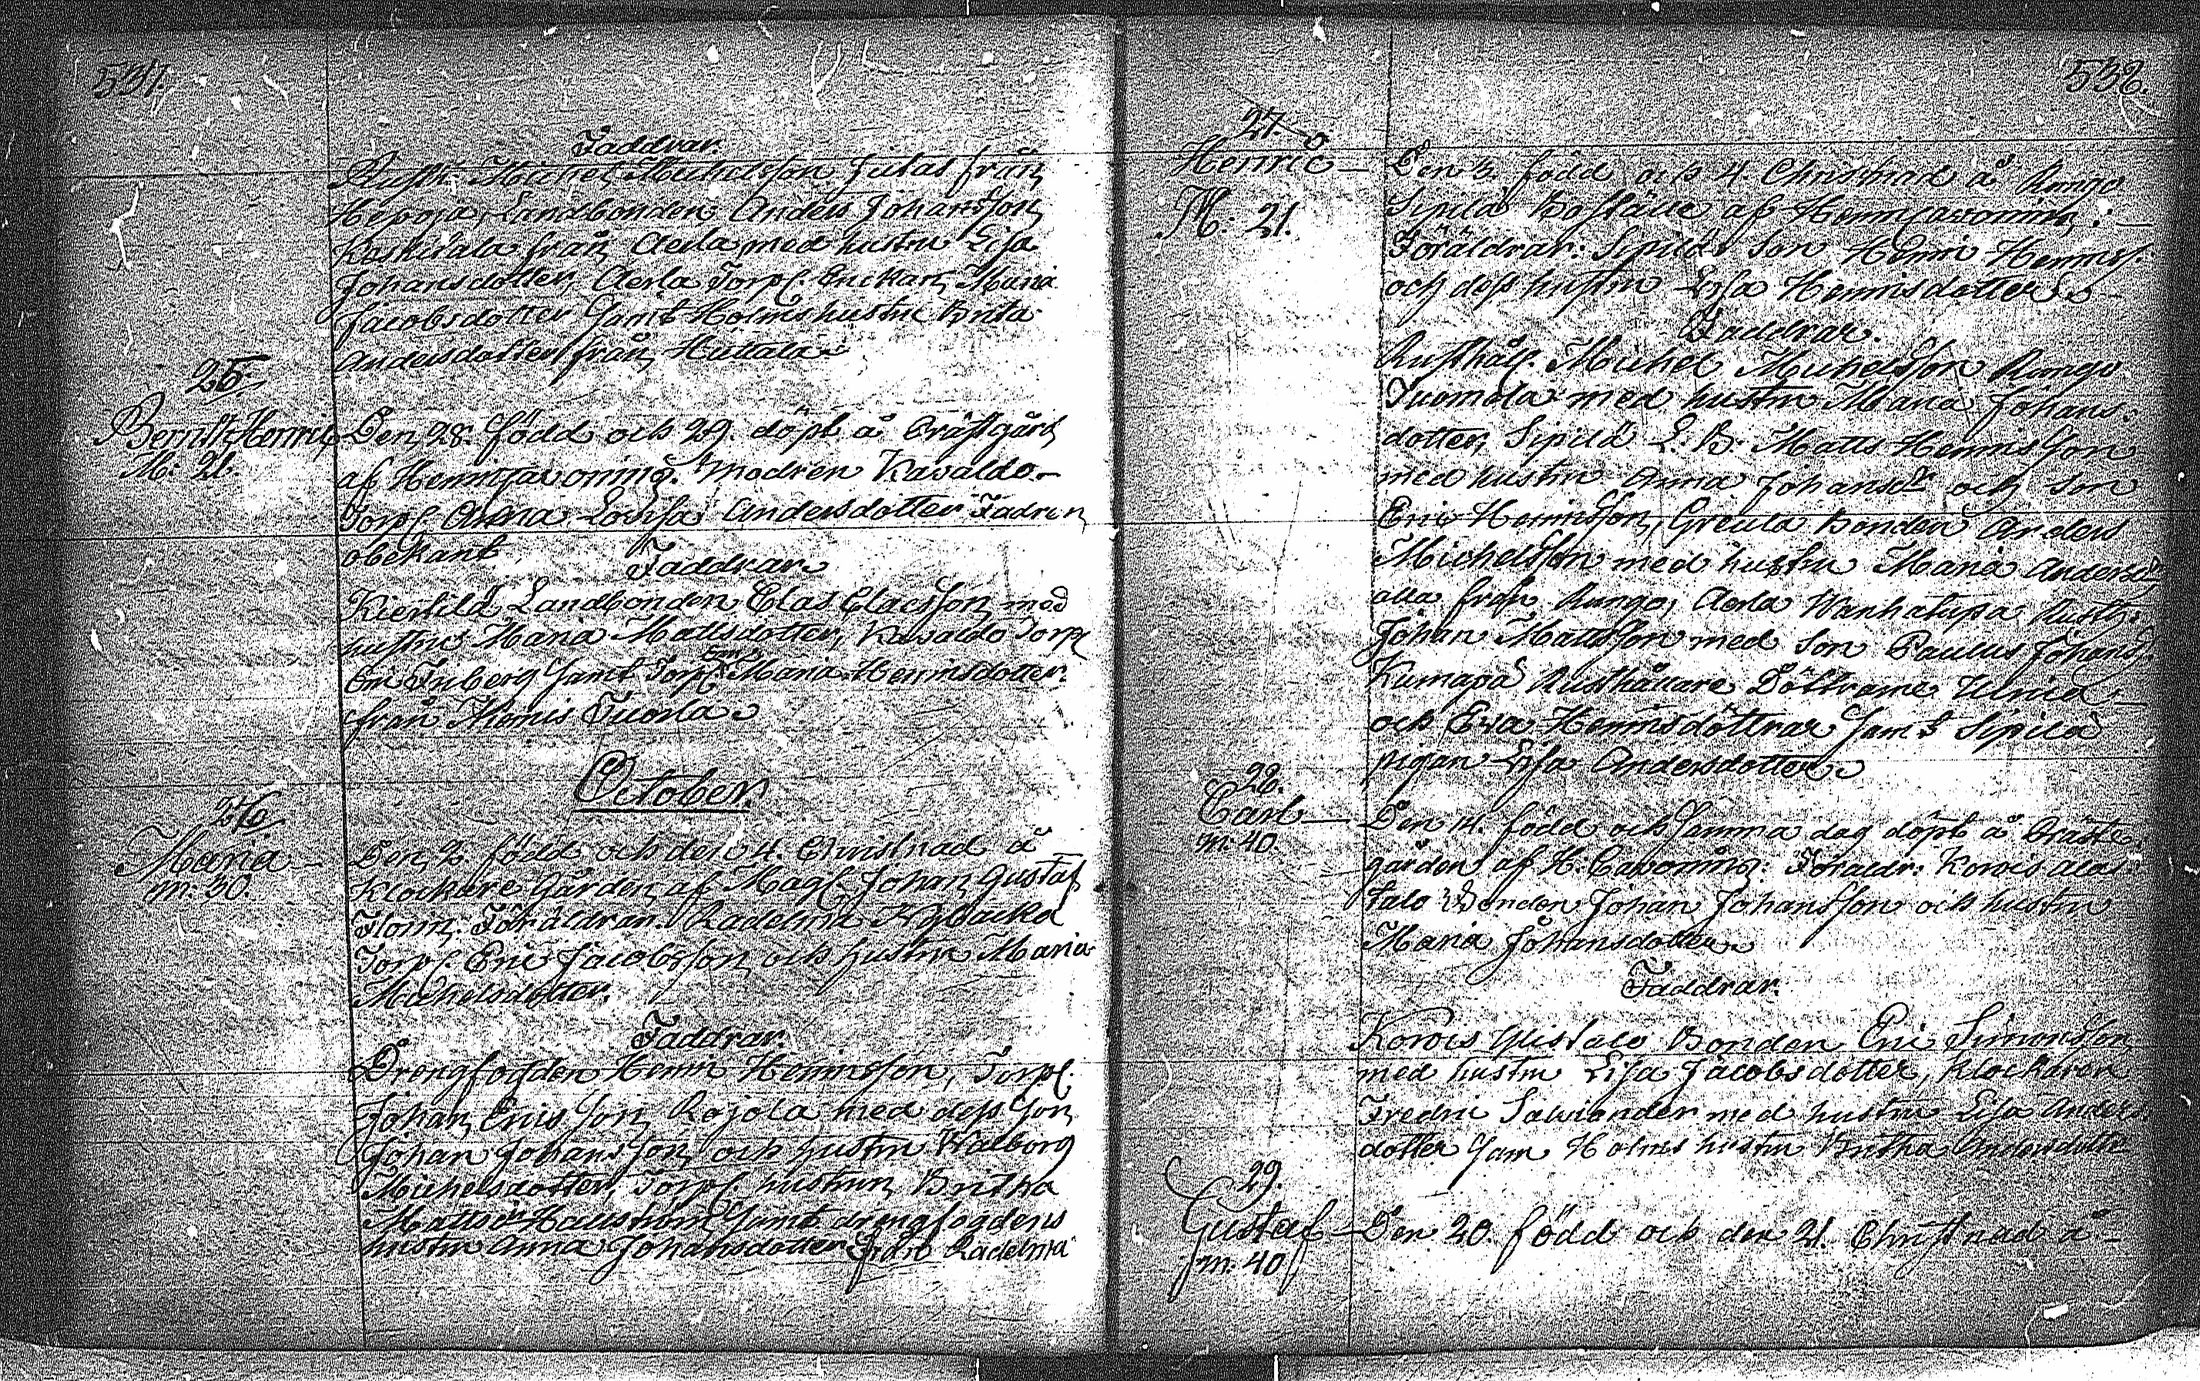 537.
Faddrar.
Rusth: Michel Michelsson Jutas från
Heponja, Landbonden Anders Johansson
Koskitala från Aerla med hustru Lisa
Johansdotter, Aerla Torp. Enckan Maria
Jacobsdotter samt Holms hustru Brita
Andersdotter från Huttala
25.
Bernt Henric,
M: 21.
Den 28. född och 29. döpt å Prästgård
af Henric Cavoning. Modren Kavaldo
Torp. Anna Lovisa Andersdotter Fadren
obekant
Faddrar
Kierfilä Landbonden Clas Classon med
hustru Maria Mattsdotter, Kavaldo Torp
Eric Friberg samt Torp. Maria Henricsdotter
från Tuorla
October.
26.
Maria
m: 30.
Den 2. född och den 4. Christnad å
Klockare Gården af Mag. Johan Gustaf
Florin. Föräldrar. Radelma Kybacka
Torp. Eric Jacobsson och hustru Maria
Michelsdotter.
Faddrar.
Drengfogden Henric Henricsson, Torp.
Johan Ericsson Rojola med dess son
Johan Johansson och hustru Walborg
Michelsdotter, Torp. hustrun Britha
Matts dr Hallström samt drengfogdens
hustru Anna Johansdotter från Radelma
538.
27.
Henric
M: 21.
Den 3. född och 4. Christnad å Rungo
Sipilä Boställe af Henric Cavoning:
Föräldrar: Sipilä son Henric Henricss.
och dess hustru Lisa Henricsdotter
Faddrar.
Rusthåll. Michel Michelsson Rungo
Tuomola med hustru Maria Johans-
dotter, Sipilä L. B. Matts Henricsson
med hustru Anna Johansdr och son
Eric Henricsson, Greula Bonden Anders
Michelsson med hustru Maria Andersdr
alla från Rungo, Aerla Wanhatupa Rusth.
Johan Mattsson med son Paulus Johanss.
Kumapä Rusthållare Döttrarne Ulrica
och Eva Henricsdöttrar samt Sipilä
pigan Lisa Andersdotter
28.
Carl
m: 40.
Den 14. född och samma dag döpt å Präste
gården af H. Cavoning: Föräldr. Korvis Ala-
talo Bonden Johan Johansson och hustru
Maria Johansdotter
Faddrar.
Korvis Ylistalo Bonden Eric Simonsson
med hustru Lisa Jacobsdotter, Klockaren
Fredric Salviander med hustru Lisa Anders-
dotter sam Holms hustru Britha Andersdotter
29.
Gustaf
m: 40
Den 20. född och den 21. Christnad å